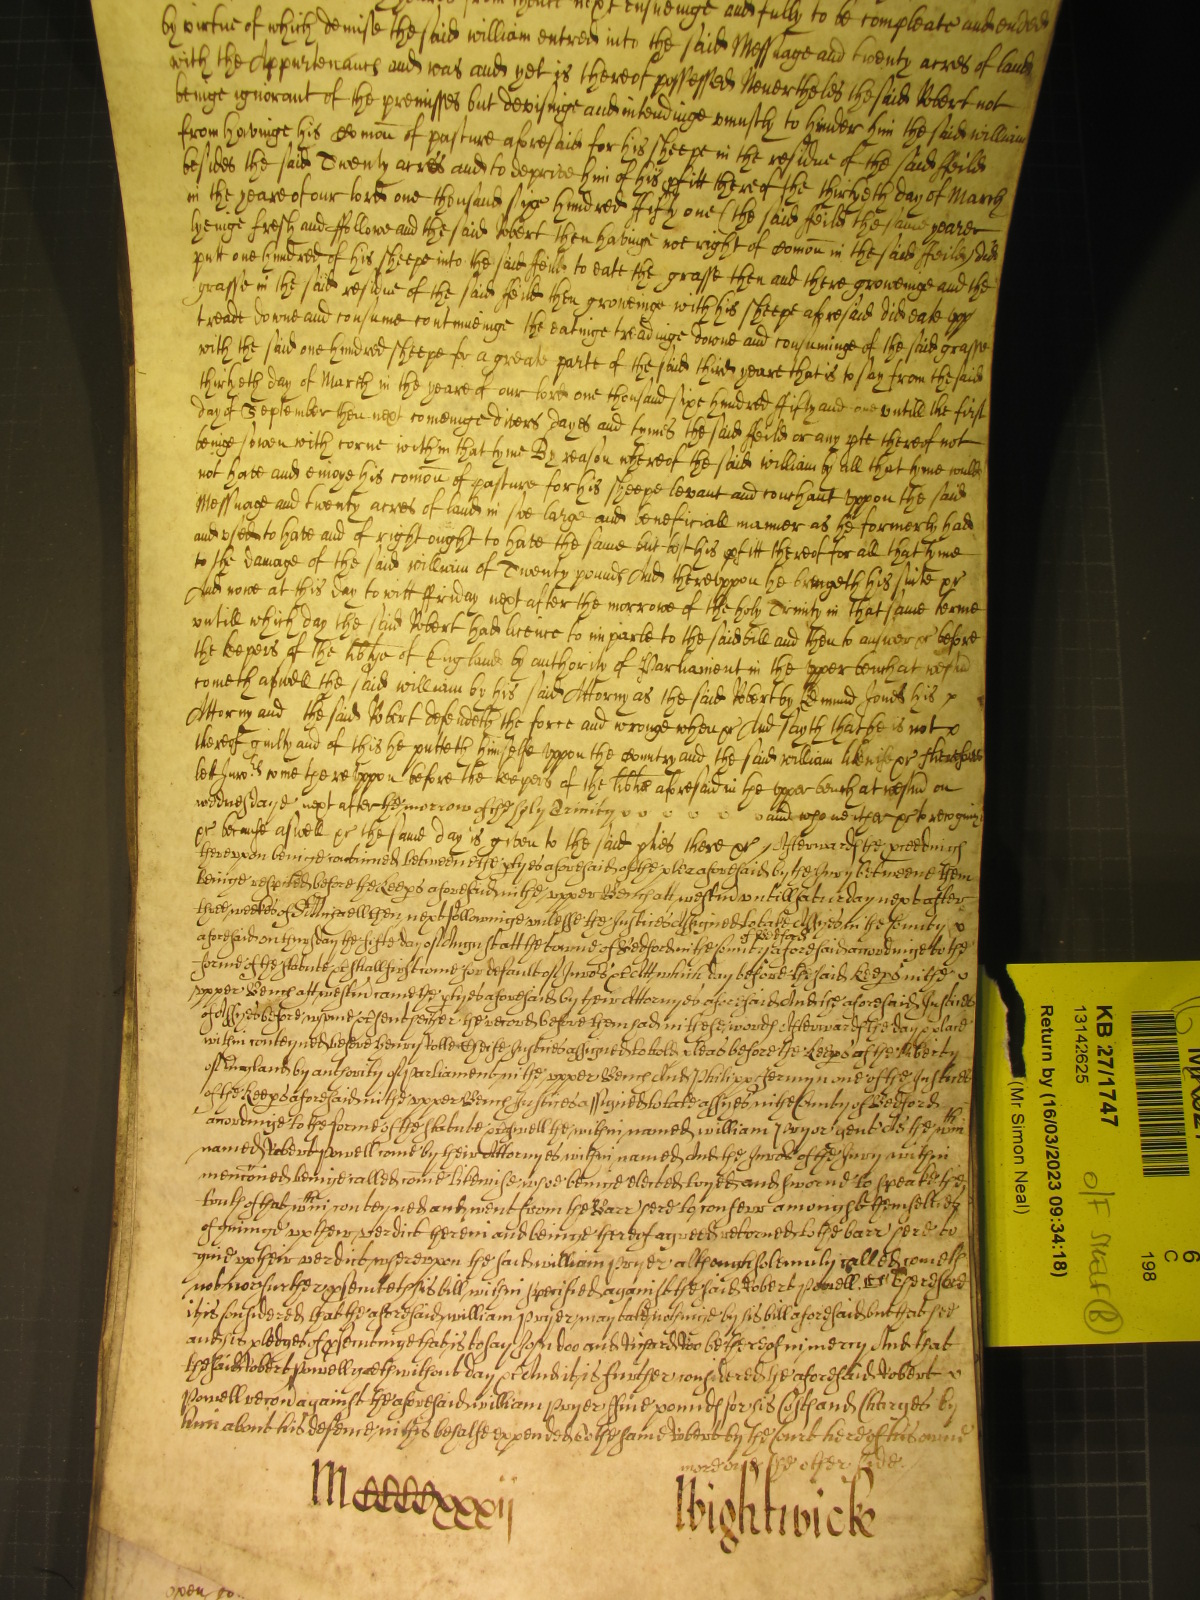 yeares from thence next ensueinge and fully to be compleate and ended
by virtue of which demise the said william entred into the said Messuage and twenty acres of land
with the Appurtenancs and was and yet is thereof possessed Neverthelés the said Robert not
beinge ignorant of the premisses but devisinge and intendinge uniustly to hinder him the said william
from havinge his comon of pasture aforesaid for his sheepe in the residue of the said feild
besides the said Twenty acres and to deprive him of his pfitt thereof the thirtyeth day of March
in the yeare of our lord one thousand sixe hundred fifty one (the said feild the same yeare
lyeinge fresh and ffallowe and the said Robert then havinge noe right of comon in the said feild) did
putt one hundred of his sheepe into the said feild to eate the grasse then and there groweinge and the
grasse in the said residue of the said feild then groweinge with his sheepe aforesaid did eate upp
treade downe and consume contineinge the eatinge treadinge downe and consuminge of the said grasse
with the said one hundred sheepe for a greate parte of the said third yeare that is to say from the said
thirtyeth day of March in the yeare of our lord one thousand sixe hundred ffifty and one untill the first
day of September then next comeinge divers dayes and tymes the said feild or any pte thereof not
beinge sowen with corne within that tyme By reason whereof the said william by all that tyme could
not have and enioye his comon of pasture for his sheepe levant and couchant uppon the said
Messuage and twenty acres of land in soe large and beneficiall manner as he formerly had
and used to have and of right ought to have the same but lost his pfitt thereof for all that tyme
to the damage of the said william of Twenty pounds And thereuppon he bringeth his suite &c
And nowe at this day to witt ffriday next after the morrowe of the holy Trinity in that same terme
untill which day the said Robert had licence to imparle to the said bill and then to answer &c before
the keepers of the libtye of England by authority of Parliament in the upper bench at westm
cometh aswell the said william by his said Attorny as the said Robert by Edmund Jones his
Attorny and the said Robert defendeth the force and wronge when &c And sayth that he is not
thereof guilty and of this he putteth himselfe uppon the Country and the said william likewise &c therefore
let a Jury come thereuppon before the keepers of the libtie aforesaid in the upper bench at westm on
wednesdaye next after the morrow of the holy Trinity and who neither &c to recognize
&c because aswell &c the same day is given to the said pties there &c Afterwards the proceedings
thereupon beinge continued betweene the ptyes aforesaid of the plea aforesaid by the Jury betweene them
beinge respited before the Keeps aforesaid in the upper Bench att westm untill saturday next after
three weekes of St Michaell then next followinge unlesse the Justices Assigned to take Assizes in the County
of Bedford
aforesaid on thursday the fifte day of August att the towne of Bedford in the County aforesaid accordinge to the
forme of the statute &c shall first come for default of Jurors &c Att which day before the said Keeps in the
upper Bench att westm came the ptyes aforesaid by their Attornyes aforesaid And the aforesaid Justices
of Assizes before whome &c sent hether the record before them had in these words Afterwards the day & place
within conteyned before Henry Rolle Cheife Justice assigned to hold pleas before the Keeps of the liberty
of England by authority of Parliament in the upper Bench And Philipp Jermyn one of the Justices
of the Keeps aforesaid in the upper Bench Justices assigned to take assizes in the County of Bedford
accordinge to the forme of the statute &c aswell the within named william Pryor gent As the wthin
named Robert Powell come by their Attornyes within named and the Jurors of the Jury within
menconed beinge called come likewise whoe beinge elected tryed and sworne to speake the
truth of that wthin conteyned and went from the Barr here to conferr amongst themselves
of giuinge up their verdict herein and beinge thereof agreed returned to the barr here to
giue up their verdict whereupon the said william Pryer although solemnly called cometh
not nor further psenteth his bill within specified against the said Robert Powell &c Therefore
it is considered that the aforesaid william Pryer may take nothinge by his bill aforesaid but that hee
and his pledges of psentinge that is to say John doo and Richard Roo be thereof in mercy And that
the said Robert Powell goeth without day &c And it is further considered the aforesaid Robert
Powell recover against the aforesaid william Pryer ffiue pounds for his Costs and Charges by
him about his defence in this behalfe expended to the same Robert by the Court here of his owne
more on the other side
Mccccxxxij
Wightwicke
open
KB 27/1747
13142625
Return by (16/03/2023 09:34:18)
(Mr Simon Neal)
6
C
198